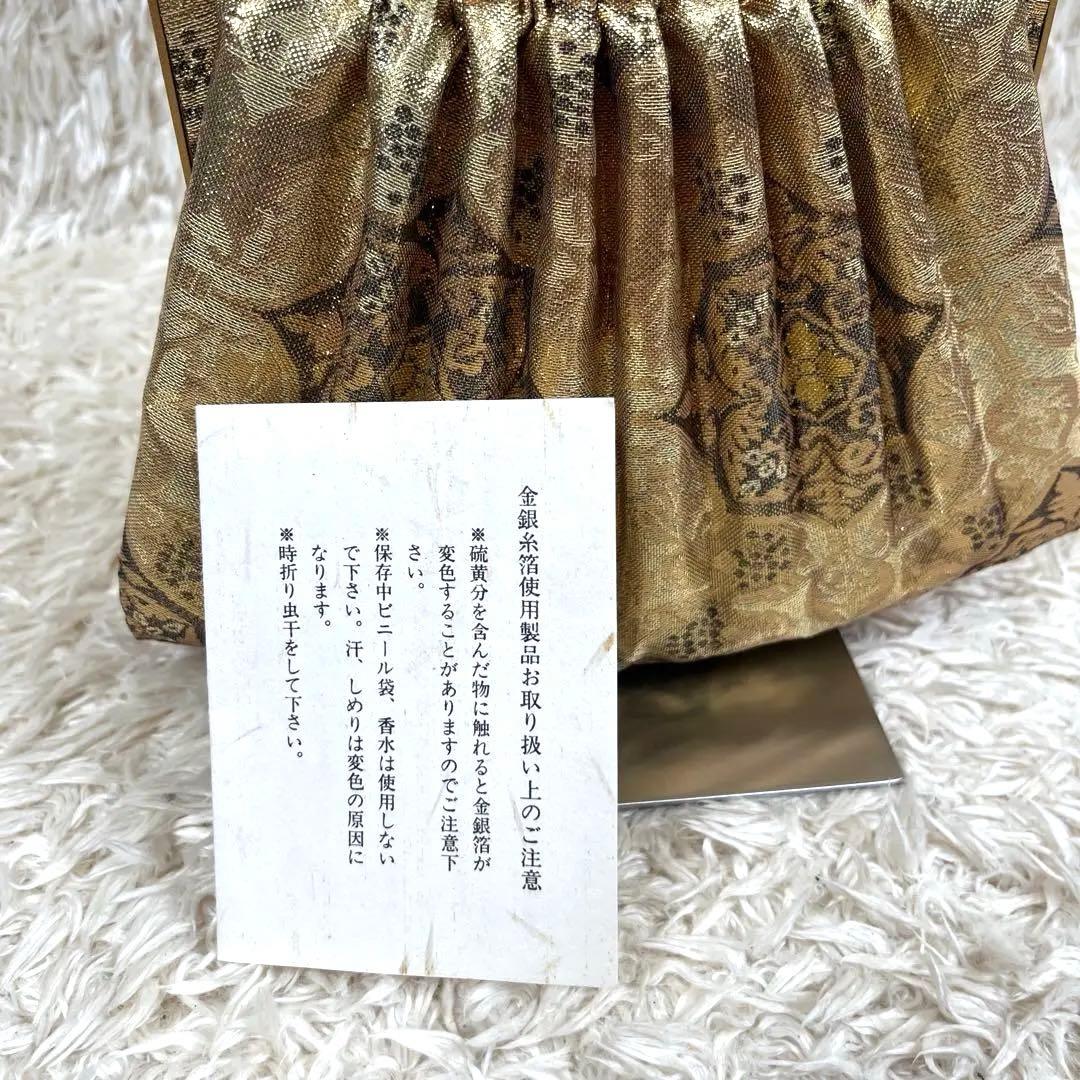 金銀糸箔使用製品お取り扱い上のご注意
※硫黄分を含んだ物に触れると金銀箔が
変色することがありますのでご注意下
さい。
※保存中ビニール袋、香水は使用しない
で下さい。汗、しめりは変色の原因に
なります。
※時折り虫干をして下さい。